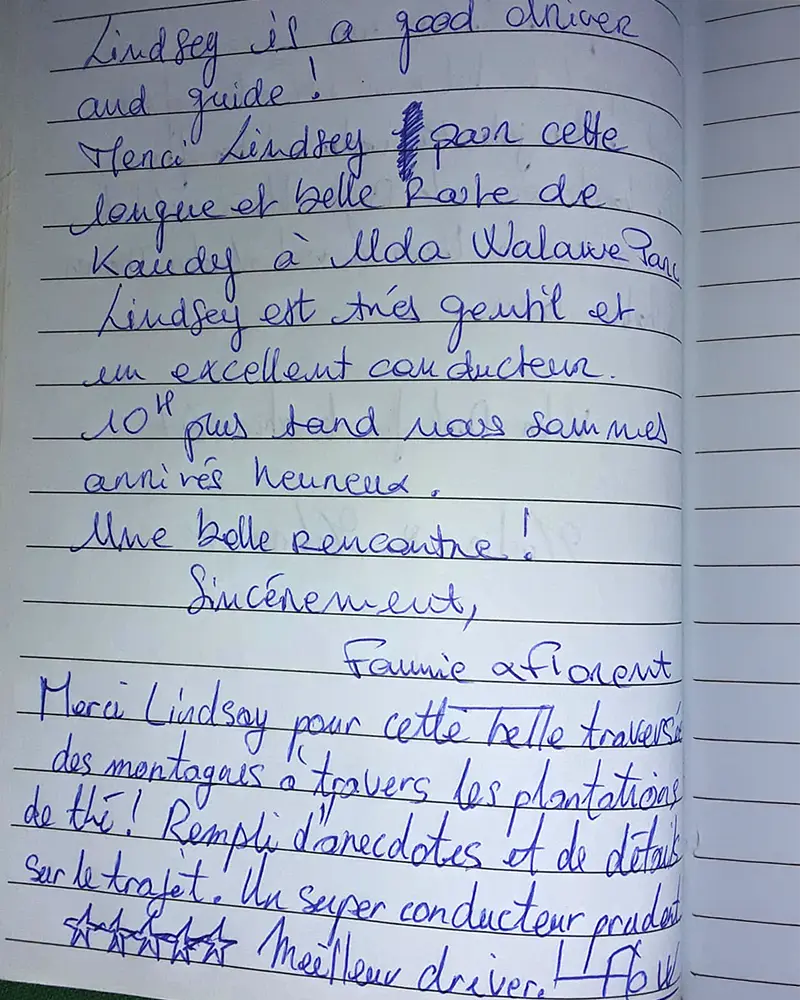 Lindsey is a good driver
and guide !
Merci Lindsey pour cette
longue et belle Route de
Kandy à Uda Walawe Parc
Lindsey est très gentil et
un excellent conducteur.
10H plus tard nous sommes
arrivés heureux.
Une belle rencontre !
Sincèrement,
Fannie & Florent
Merci Lindsay pour cette belle traversé
des montagnes à travers les plantations
de thé ! Rempli d'anecdotes et de détails
sur le trajet. Un super conducteur prudent
☆☆☆☆☆ Meilleur driver. Flow